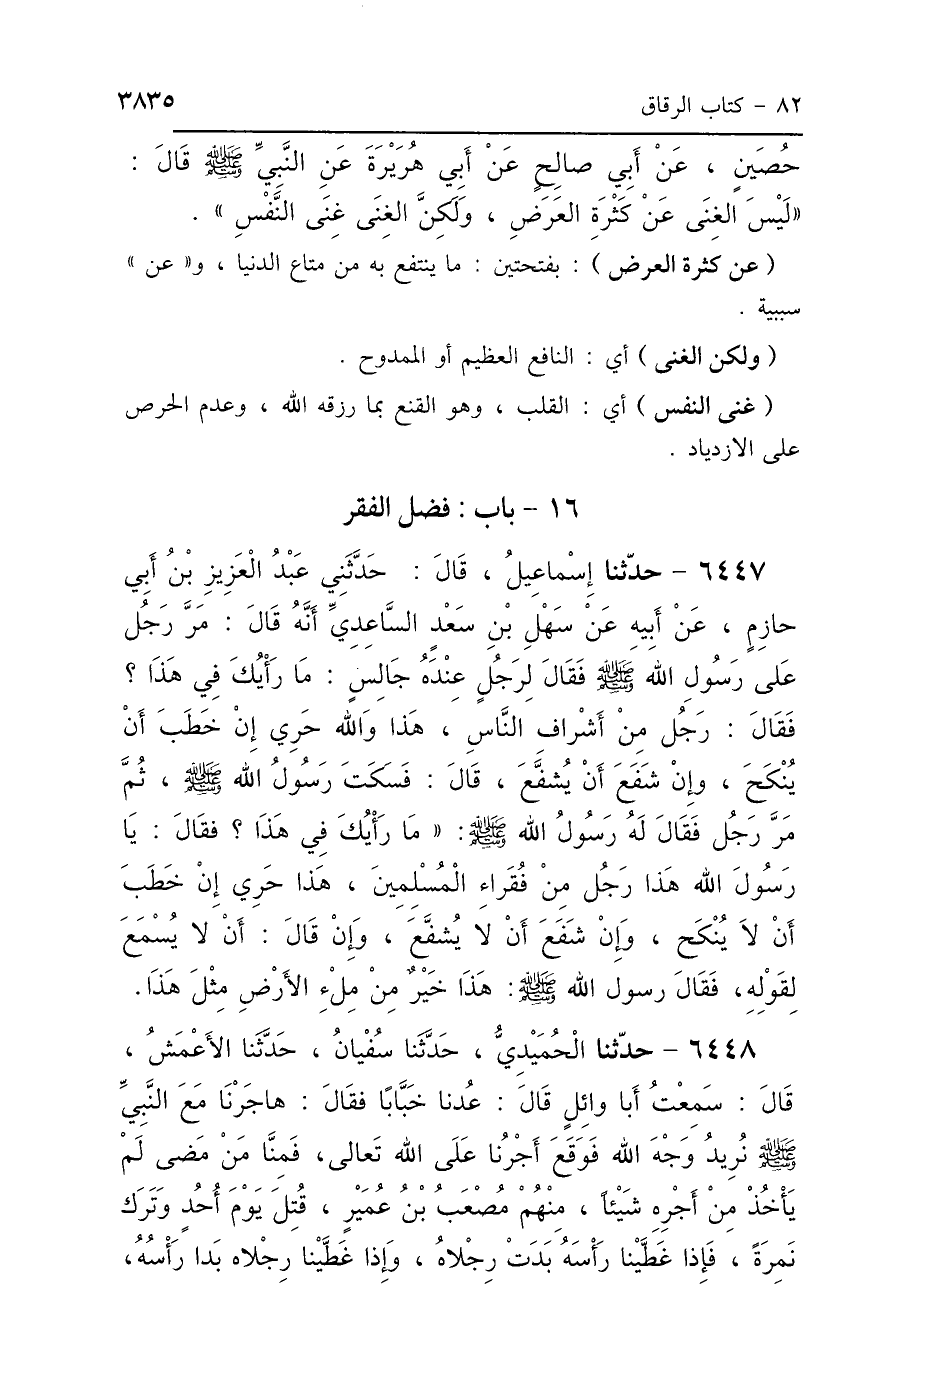 ٨٢ - كتاب الرقاق ٣٨٣٥
حُصَينٍ ، عَنْ أَبي صالِحٍ عَنْ أَبي هُرَيْرَةَ عَنِ النَّبِيِّ ﷺ قَالَ :
«لَيْسَ الغِنَى عَنْ كَثْرَةِ العَرَضِ ، وَلَكِنَّ الغِنَى غِنَى النَّفْسِ » .
( عن كثرة العرض ) : بفتحتين : ما ينتفع به من متاع الدنيا ، و« عن »
سببية .
( ولكن الغنى ) أي : النافع العظيم أو الممدوح .
( غنى النفس ) أي : القلب ، وهو القنع بما رزقه الله ، وعدم الحرص
على الازدياد .
١٦ - باب : فضل الفقر
٦٤٤٧ - حدّثنا إِسْماعِيلُ ، قَالَ : حَدَّثَنِي عَبْدُ الْعَزِيزِ بْنُ أَبي
حازِمٍ ، عَنْ أَبِيهِ عَنْ سَهْلِ بْنِ سَعْدٍ السَّاعِدِيِّ أَنَّهُ قَالَ : مَرَّ رَجُل
عَلى رَسُولِ الله ﷺ فَقَالَ لِرَجُلٍ عِنْدَهُ جَالِسٍ : مَا رَأْيُكَ فِي هَذَا ؟
فَقَالَ : رَجُل مِنْ أَشْرافِ النَّاسِ ، هَذا وَالله حَرِي إِنْ خَطَبَ أَنْ
يُنْكَحَ ، وإِنْ شَفَعَ أَنْ يُشفَّعَ ، قَالَ : فَسكَتَ رَسُولُ الله ﷺ ، ثُمَّ
مَرَّ رَجُل فَقَالَ لَهُ رَسُولُ الله ﷺ: « مَا رَأْيُكَ فِي هَذَا ؟ فقَالَ : يَا
رَسُولَ الله هَذا رَجُل مِنْ فُقَراءِ الْمُسْلِمِينَ ، هَذا حَرِي إِنْ خَطَبَ
أَنْ لاَ يُنْكَح ، وَإِنْ شفَعَ أَنْ لا يُشفَّعَ ، وَإِنْ قالَ : أَنْ لا يُسْمَعَ
لِقَوْلِهِ، فَقَالَ رسول الله ﷺ: هَذَا خَيْرٌ مِنْ مِلْءِ الأَرْضِ مِثْلَ هَذَا.
٦٤٤٨ - حدّثنا الْحُمَيْدِيُّ ، حَدَّثَنا سُفْيانُ ، حَدَّثَنا الأَعْمَشُ ،
قَالَ : سَمِعْتُ أَبا وائِلٍ قَالَ : عُدنا خَبَّابًا فقَالَ : هاجَرْنَا مَعَ النَّبِيِّ
ﷺ نُرِيدُ وَجْهَ الله فَوَقَعَ أَجْرُنا عَلَى الله تَعالى، فَمِنَّا مَنْ مَضى لَمْ
يَأْخُذْ مِنْ أَجْرِهِ شَيْئاً ، مِنْهُمْ مُصْعَبُ بْنُ عُمَيْرٍ ، قُتِلَ يَوْمَ أُحُدٍ وَتَرَكَ
نَمِرَةً ، فَإِذا غَطَّيْنا رَأْسَهُ بَدَتْ رِجْلاهُ ، وَإِذا غَطَّيْنا رِجْلاه بَدا رَأْسُهُ،